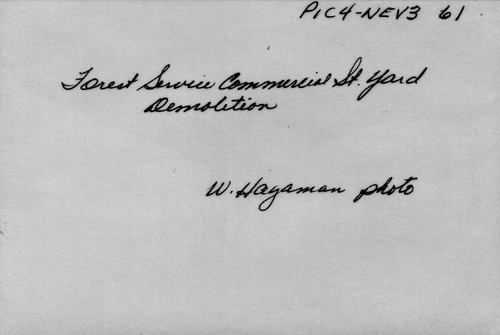 PIC4-NEV3 61
Forest Service Commercial St. Yard
Demolition
W. Hagaman photo